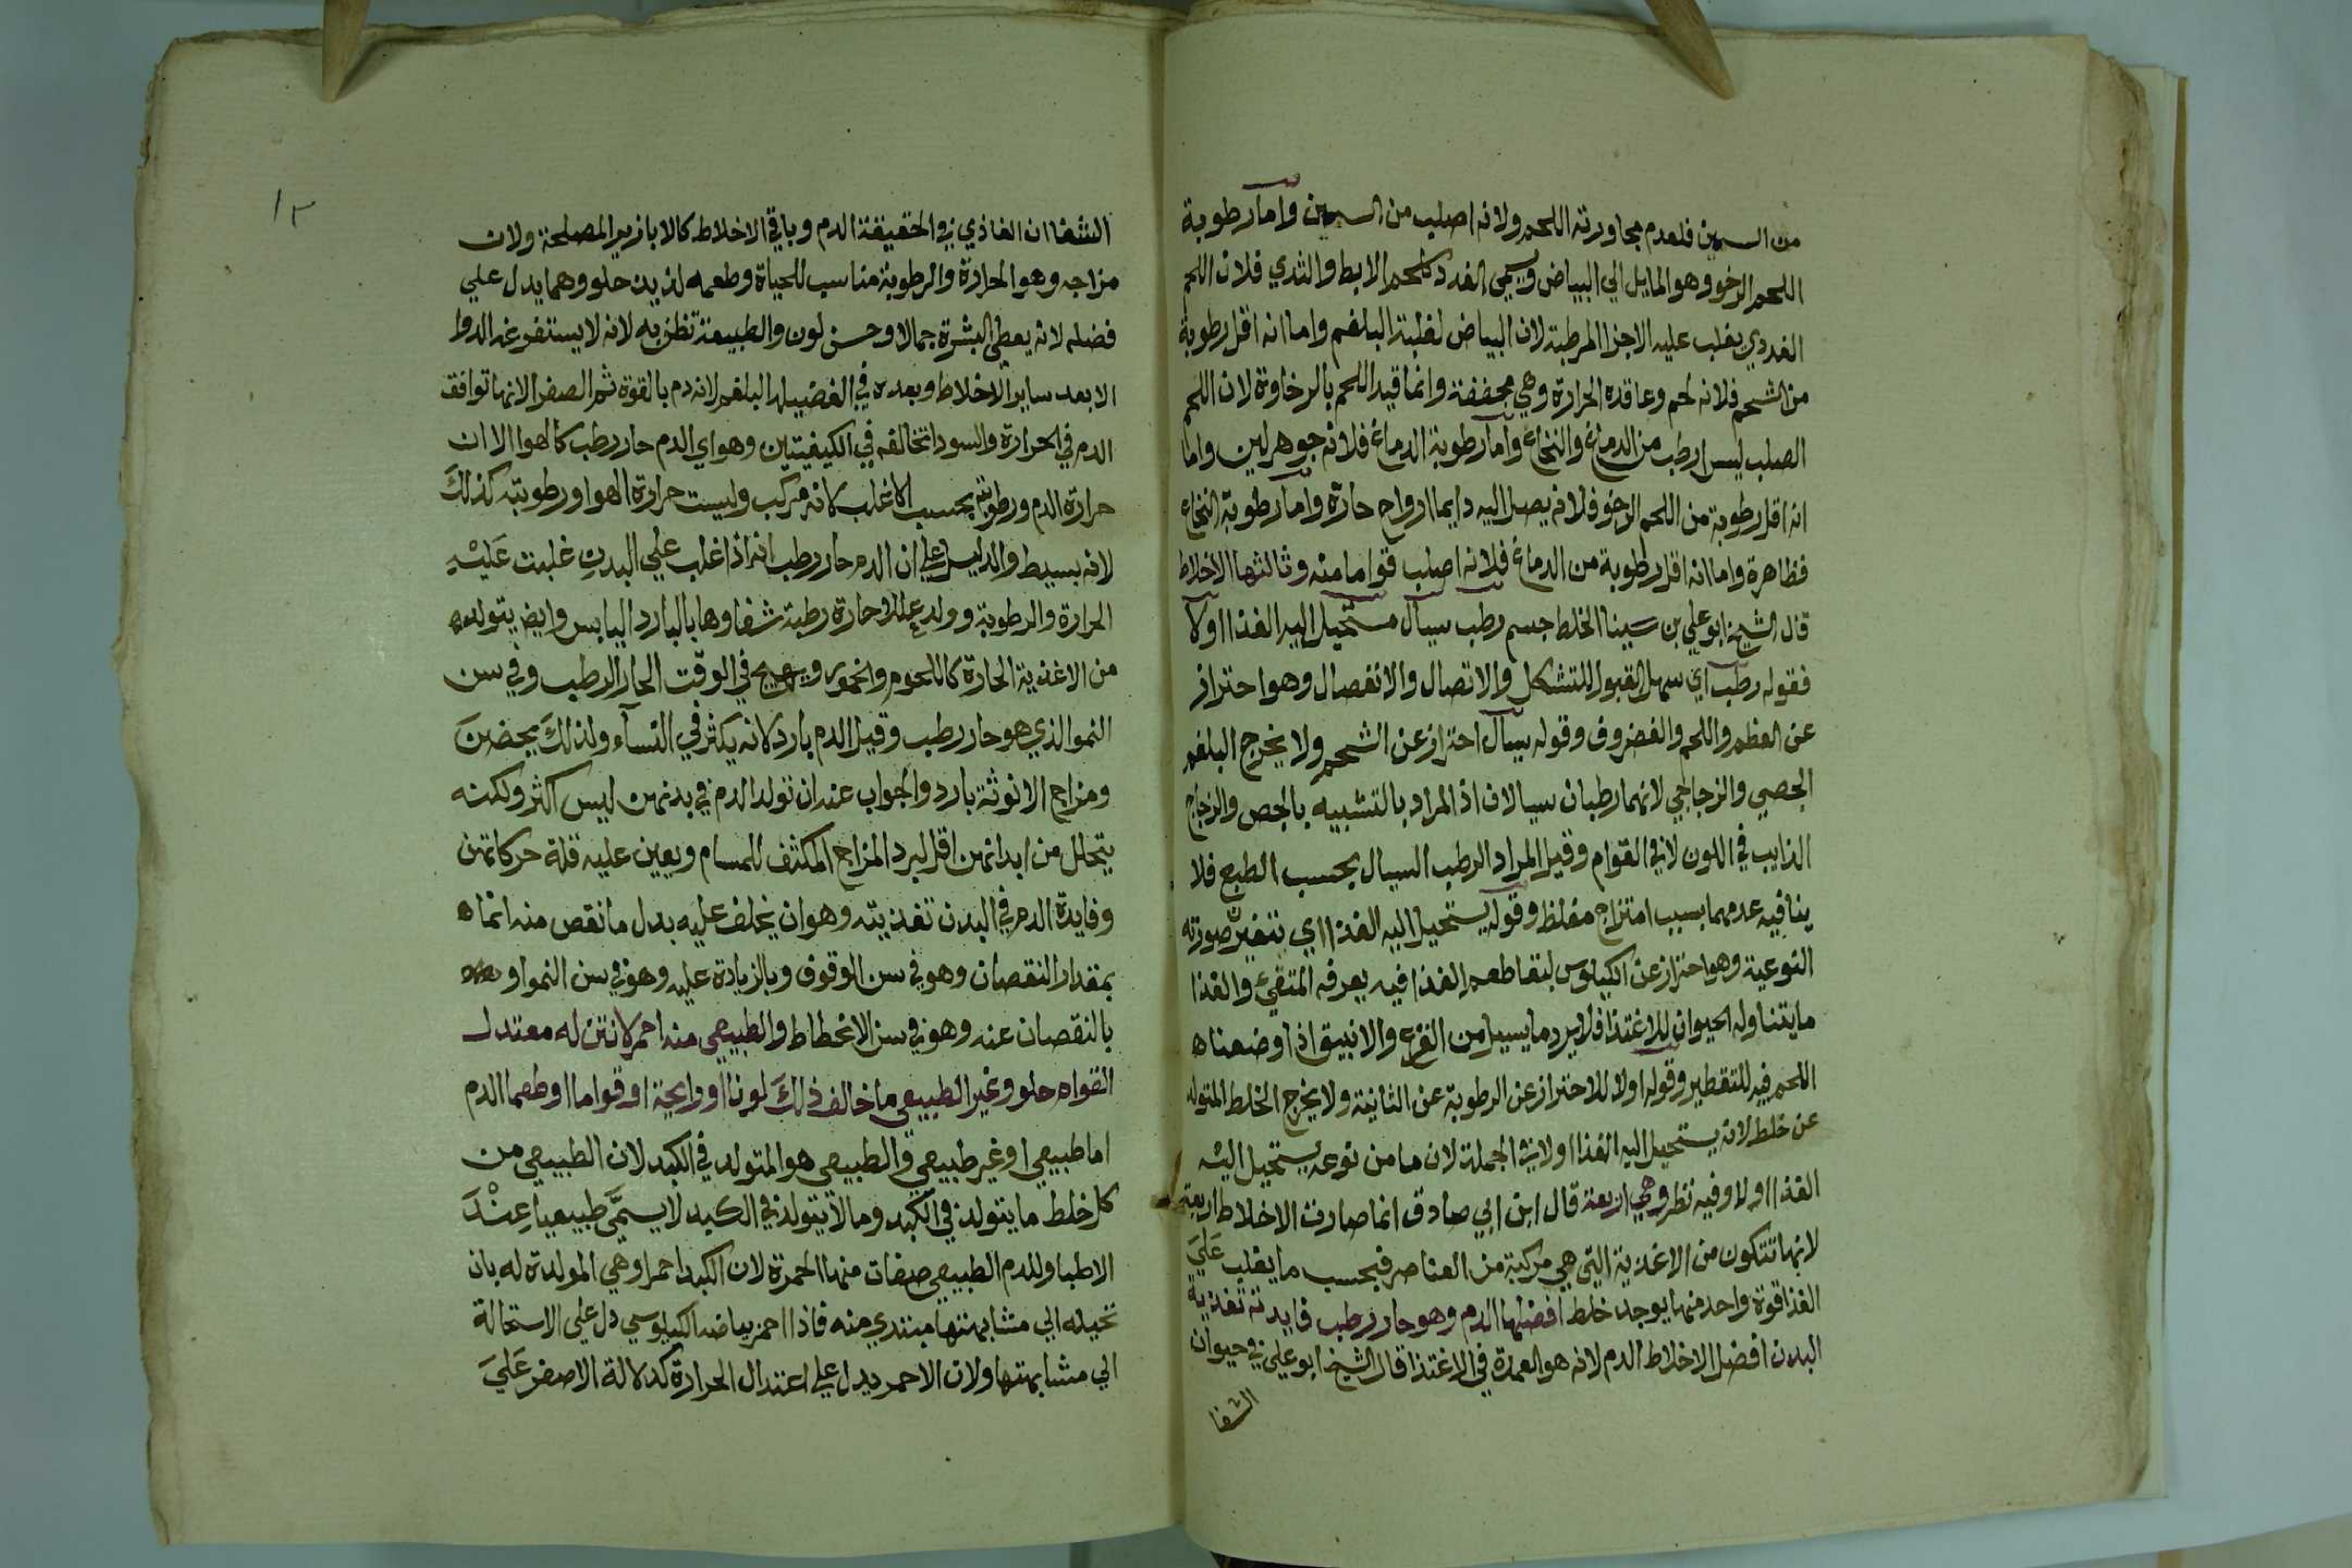 من السمين فلعدم مجاورته اللحم ولانه اصلب من السمين واما رطوبة
اللحم الرخو وهو المايل الي البياض ويسمي الغدد كلحم الابط والثدي فلان اللحم
الغددي يغلب عليه الاجزا المرطبة لان البياض لغلبة البلغم واما انه اقل رطوبة
من الشحم فلانه لحم وعاقده الحرارة وهي مجففة وانما قيد اللحم بالرخاوة لان اللحم
الصلب ليس ارطب من الدماغ والنخاع واما رطوبة الدماغ فلانه جوهر لين واما
انه اقل رطوبة من اللحم الرخو فلانه يصل اليه دايما ارواح حارة واما رطوبة النخاع
فظاهرة واما انه اقل رطوبة من الدماغ فلانه اصلب قواما منه وثالثها الاخلاط
قال الشيخ ابو علي بن سينا الخلط جسم رطب سيال مستحيل اليه الغذا اولا
فقوله رطب اي سهل القبول للتشكل والاتصال والانفصال وهو احتراز
عن العظم واللحم والغضروف وقوله سيال احتراز عن الشحم ولا يخرج البلغم
الجصي والزجاجي لانهما رطبان سيالان اذ المراد بالتشبيه بالجص والزجاج
الذايب في اللون لا في القوام وقيل المراد الرطب السيال بحسب الطبع فلا
ينافيه عدمهما بسبب امتزاج مغلظ وقوله يستحيل اليه الغذا اي تتغير صورته
النوعية وهو احتراز عن الكيلوس لبقا طعم الغذا فيه يعرفه المتقيئ والغذا
ما يتناوله الحيوان للاغتذا فلا يرد ما يسيل من القرع والانبيق اذا وضعناه
اللحم فيه للتقطير وقوله اولا للاحتراز عن الرطوبة عن الثانية ولا يخرج الخلط المتولد
عن خلط لانه يستحيل اليه الغذا اولا في الجملة لان ما من نوعه يستحيل اليه
الغذا اولا وفيه نظر وهي اربعة قال ابن ابي صادق انما صارت الاخلاط اربعة
لانها تتكون من الاغذية التي هي مركبة من العناصر فبحسب ما يغلب علي
الغذا قوة واحد منها يوجد خلط افضلها الدم وهو حار رطب فايدته تغذية
البدن افضل الاخلاط الدم لانه هو العمدة في الاغتذا قال الشيخ ابو علي في حيوان
الشفا
١٢
الشفا ان الغاذي في الحقيقة الدم وباقي الاخلاط كالابازير المصلحة ولان
مزاجه وهو الحرارة والرطوبة مناسب للحياة وطعمه لذيذ حلو وهما يدل علي
فضله لانه يعطي البشرة جمالا وحسن لون والطبيعة تظن به لانه لا يستفرغه الدوا
الا بعد ساير الاخلاط وبعده في الفضيله البلغم لانه دم بالقوة ثم الصفرا لانها توافق
الدم في الحرارة والسودا تخالفه في الكيفيتين وهو اي الدم حار رطب كالهوا الا ان
حرارة الدم ورطوبته بحسب الاغلب لانه مركب وليست حرارة الهوا ورطوبته كذلك
لانه بسيط والدليل علي ان الدم حار رطب انه اذا غلب علي البدن غلبت عليه
الحرارة والرطوبة وولد عللا حارة رطبة شفاوها بالبارد اليابس وايض يتولد
من الاغذية الحارة كاللحوم والخمور ويهيج في الوقت الحار الرطب وفي سن
النمو الذي هو حار رطب وقيل الدم بارد لانه يكثر في النسآء ولذلك يحضن
ومزاج الانوثة بارد والجواب عنه ان تولد الدم في بدنهن ليس اكثر ولكنه
يتحلل من ابدانهن اقل لبرد المزاج المكثف للمسام ويعين عليه قلة حركاتهن
وفايدة الدم في البدن تغذيته وهو ان يخلف عليه بدل ما نقص منه اما
بمقدار النقصان وهو في سن الوقوف وبالزيادة عليه وهو في سن النمو او
بالنقصان عنه وهو في سن الانحطاط والطبيعي منه احمر لا نتن له معتدل
القوام حلو وغير الطبيعي ما خالف ذلك لونا او رايحة او قواما او طعما الدم
اما طبيعي او غير طبيعي والطبيعي هو المتولد في الكبد لان الطبيعي من
كل خلط ما يتولد في الكبد وما لا يتولد في الكبد لا يسمي طبيعيا عند
الاطبا وللدم الطبيعي صفات منها الحمرة لان الكبد احمرا وهي المولدة له بان
تحيله الي مشابهتها مبتدي منه فاذا احمر بياض الكيلوسي دل علي الاستحالة
الي مشابهتها ولان الاحمر يدل علي اعتدال الحرارة كدلالة الاصفر علي